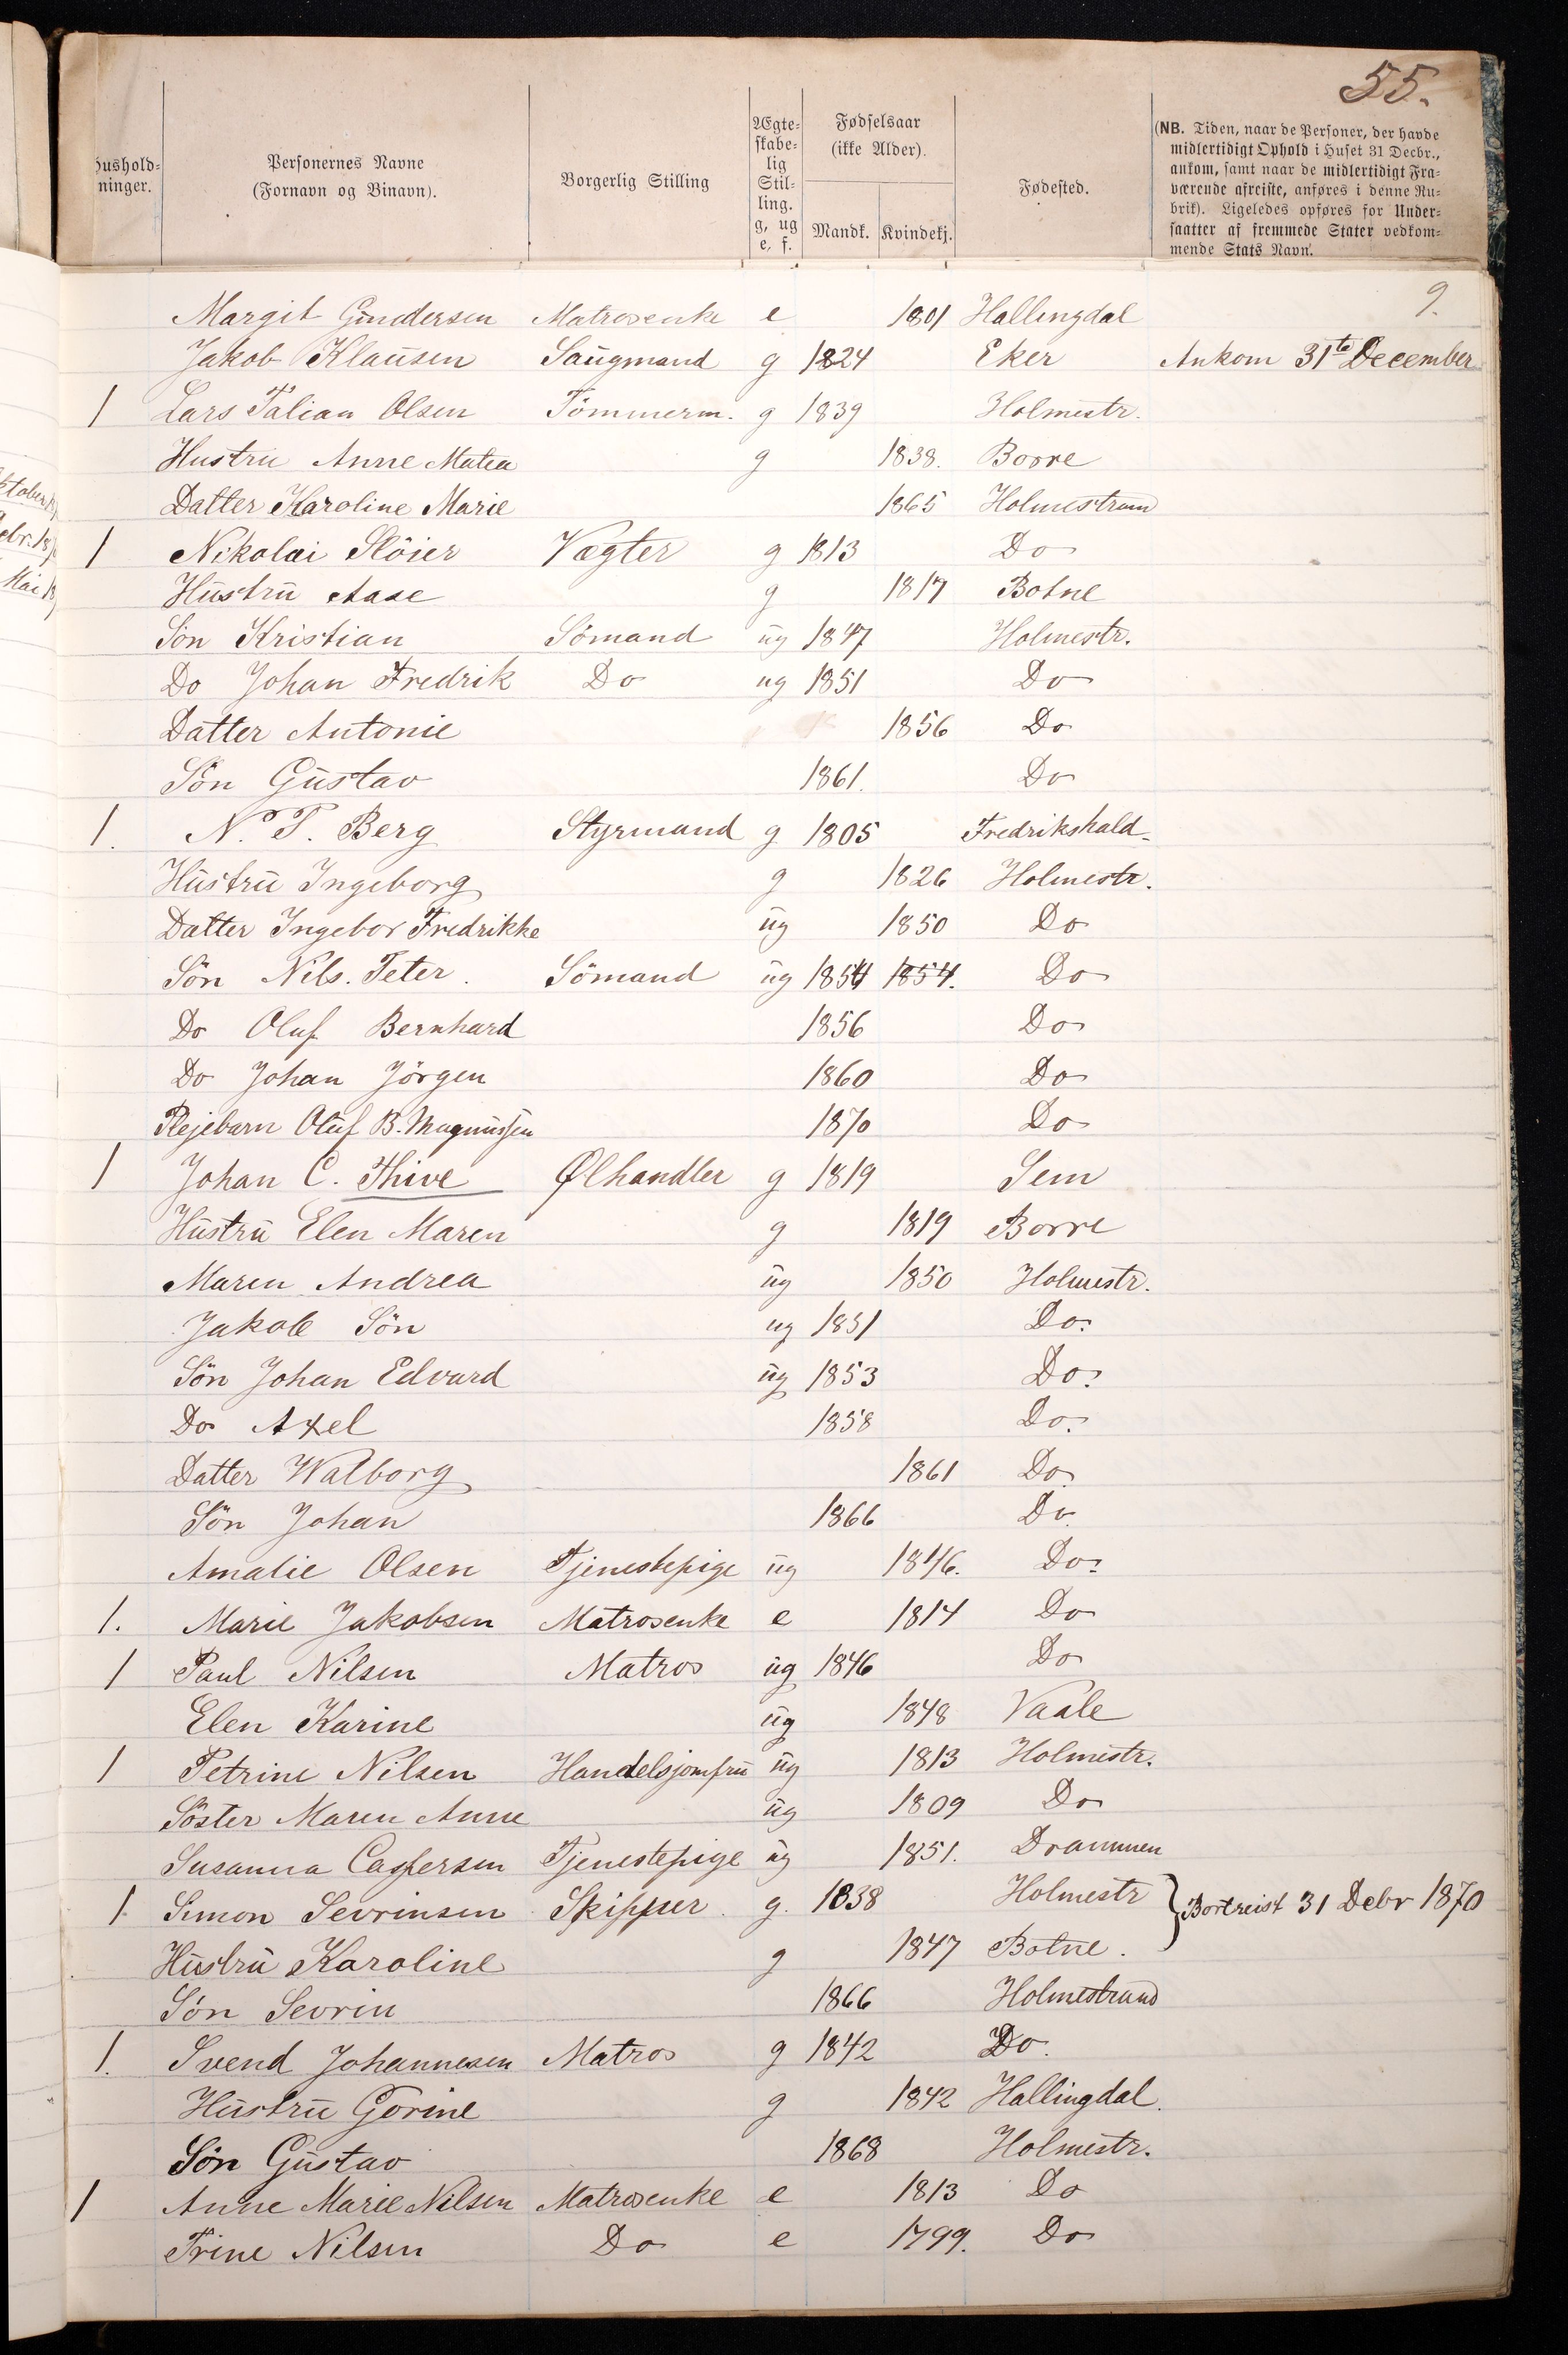 55.
Hushold-
ninger.
Personernes Navne
(Fornavn og Binavn).
Borgerlig Stilling
Ægte-
skabe-
lig
Stil-
ling.
g, ug
e, f.
Fødselsaar
(ikke Alder).
Mandk. Kvindekj.
Fødested.
(NB. Tiden, naar de Personer, der havde
midlertidigt Ophold i Huset 31 Decbr.,
ankom, samt naar de midlertidigt Fra-
værende afreiste, anføres i denne Ru-
brik). Ligeledes opføres for Under-
saatter af fremmede Stater vedkom-
mende Stats Navn.
9.
Margit Gundersen Matrosenke e 1801 Hallingdal
Jakob Klausen Saugmand g 1824 Eker Ankom 31te December
1 Lars Talian Olsen Tömmerm. g 1839 Holmestr.
Hustru Anne Matea g 1838. Borre
Datter Karoline Marie 1865 Holmestrand
1 Nikolai Slöier Vægter g 1813 Do
Hustru Aase g 1817 Botne
Sön Kristian Sömand ug 1847 Holmestr.
Do Johan Fredrik Do ug 1851 Do
Datter Antonie 1856 Do
Sön Gustav 1861. Do
1. N. P. Berg Styrmand g 1805 Fredrikshald
Hustru Ingeborg g 1826 Holmestr.
Datter Ingebor Fredrikke ug 1850 Do
Sön Nils Peter Sömand ug 1854 1854. Do
Do Oluf Bernhard 1856 Do
Do Johan Jörgen 1860 Do
Plejebarn Oluf B. Magnussen 1870 Do
1 Johan C. Thive Ølhandler g 1819 Sem
Hustru Elen Maren g 1819 Borre
Maren Andrea ug 1850 Holmestr.
Jakob Sön ug 1851 Do.
Sön Johan Edvard ug 1853 Do.
Do Axel 1858 Do.
Datter Walborg 1861 Do
Sön Johan 1866 Do
Amalie Olsen Tjenestepige ug 1846. Do.
1. Marie Jakobsen Matrosenke e 1814 Do
1 Paul Nilsen Matros ug 1846 Do
Elen Karine ug 1848 Vaale
1 Petrine Nilsen Handelsjomfru ug 1813 Holmestr.
Söster Maren Anne ug 1809 Do
Susanna Caspersen Tjenestepige ug 1851. Drammen
1 Simon Sevrinsen Skipper. g. 1838 Holmestr } Bortreist 31 Debr 1870
Hustru Karoline g 1847 Botne.
Sön Sevrin 1866 Holmestrand
1. Svend Johannesen Matros g 1842 Do.
Hustru Gorine g 1842 Hallingdal.
Sön Gustav 1868 Holmestr.
1 Anne Marie Nilsen Matrosenke e 1813 Do
Trine Nilsen Do e 1799. Do